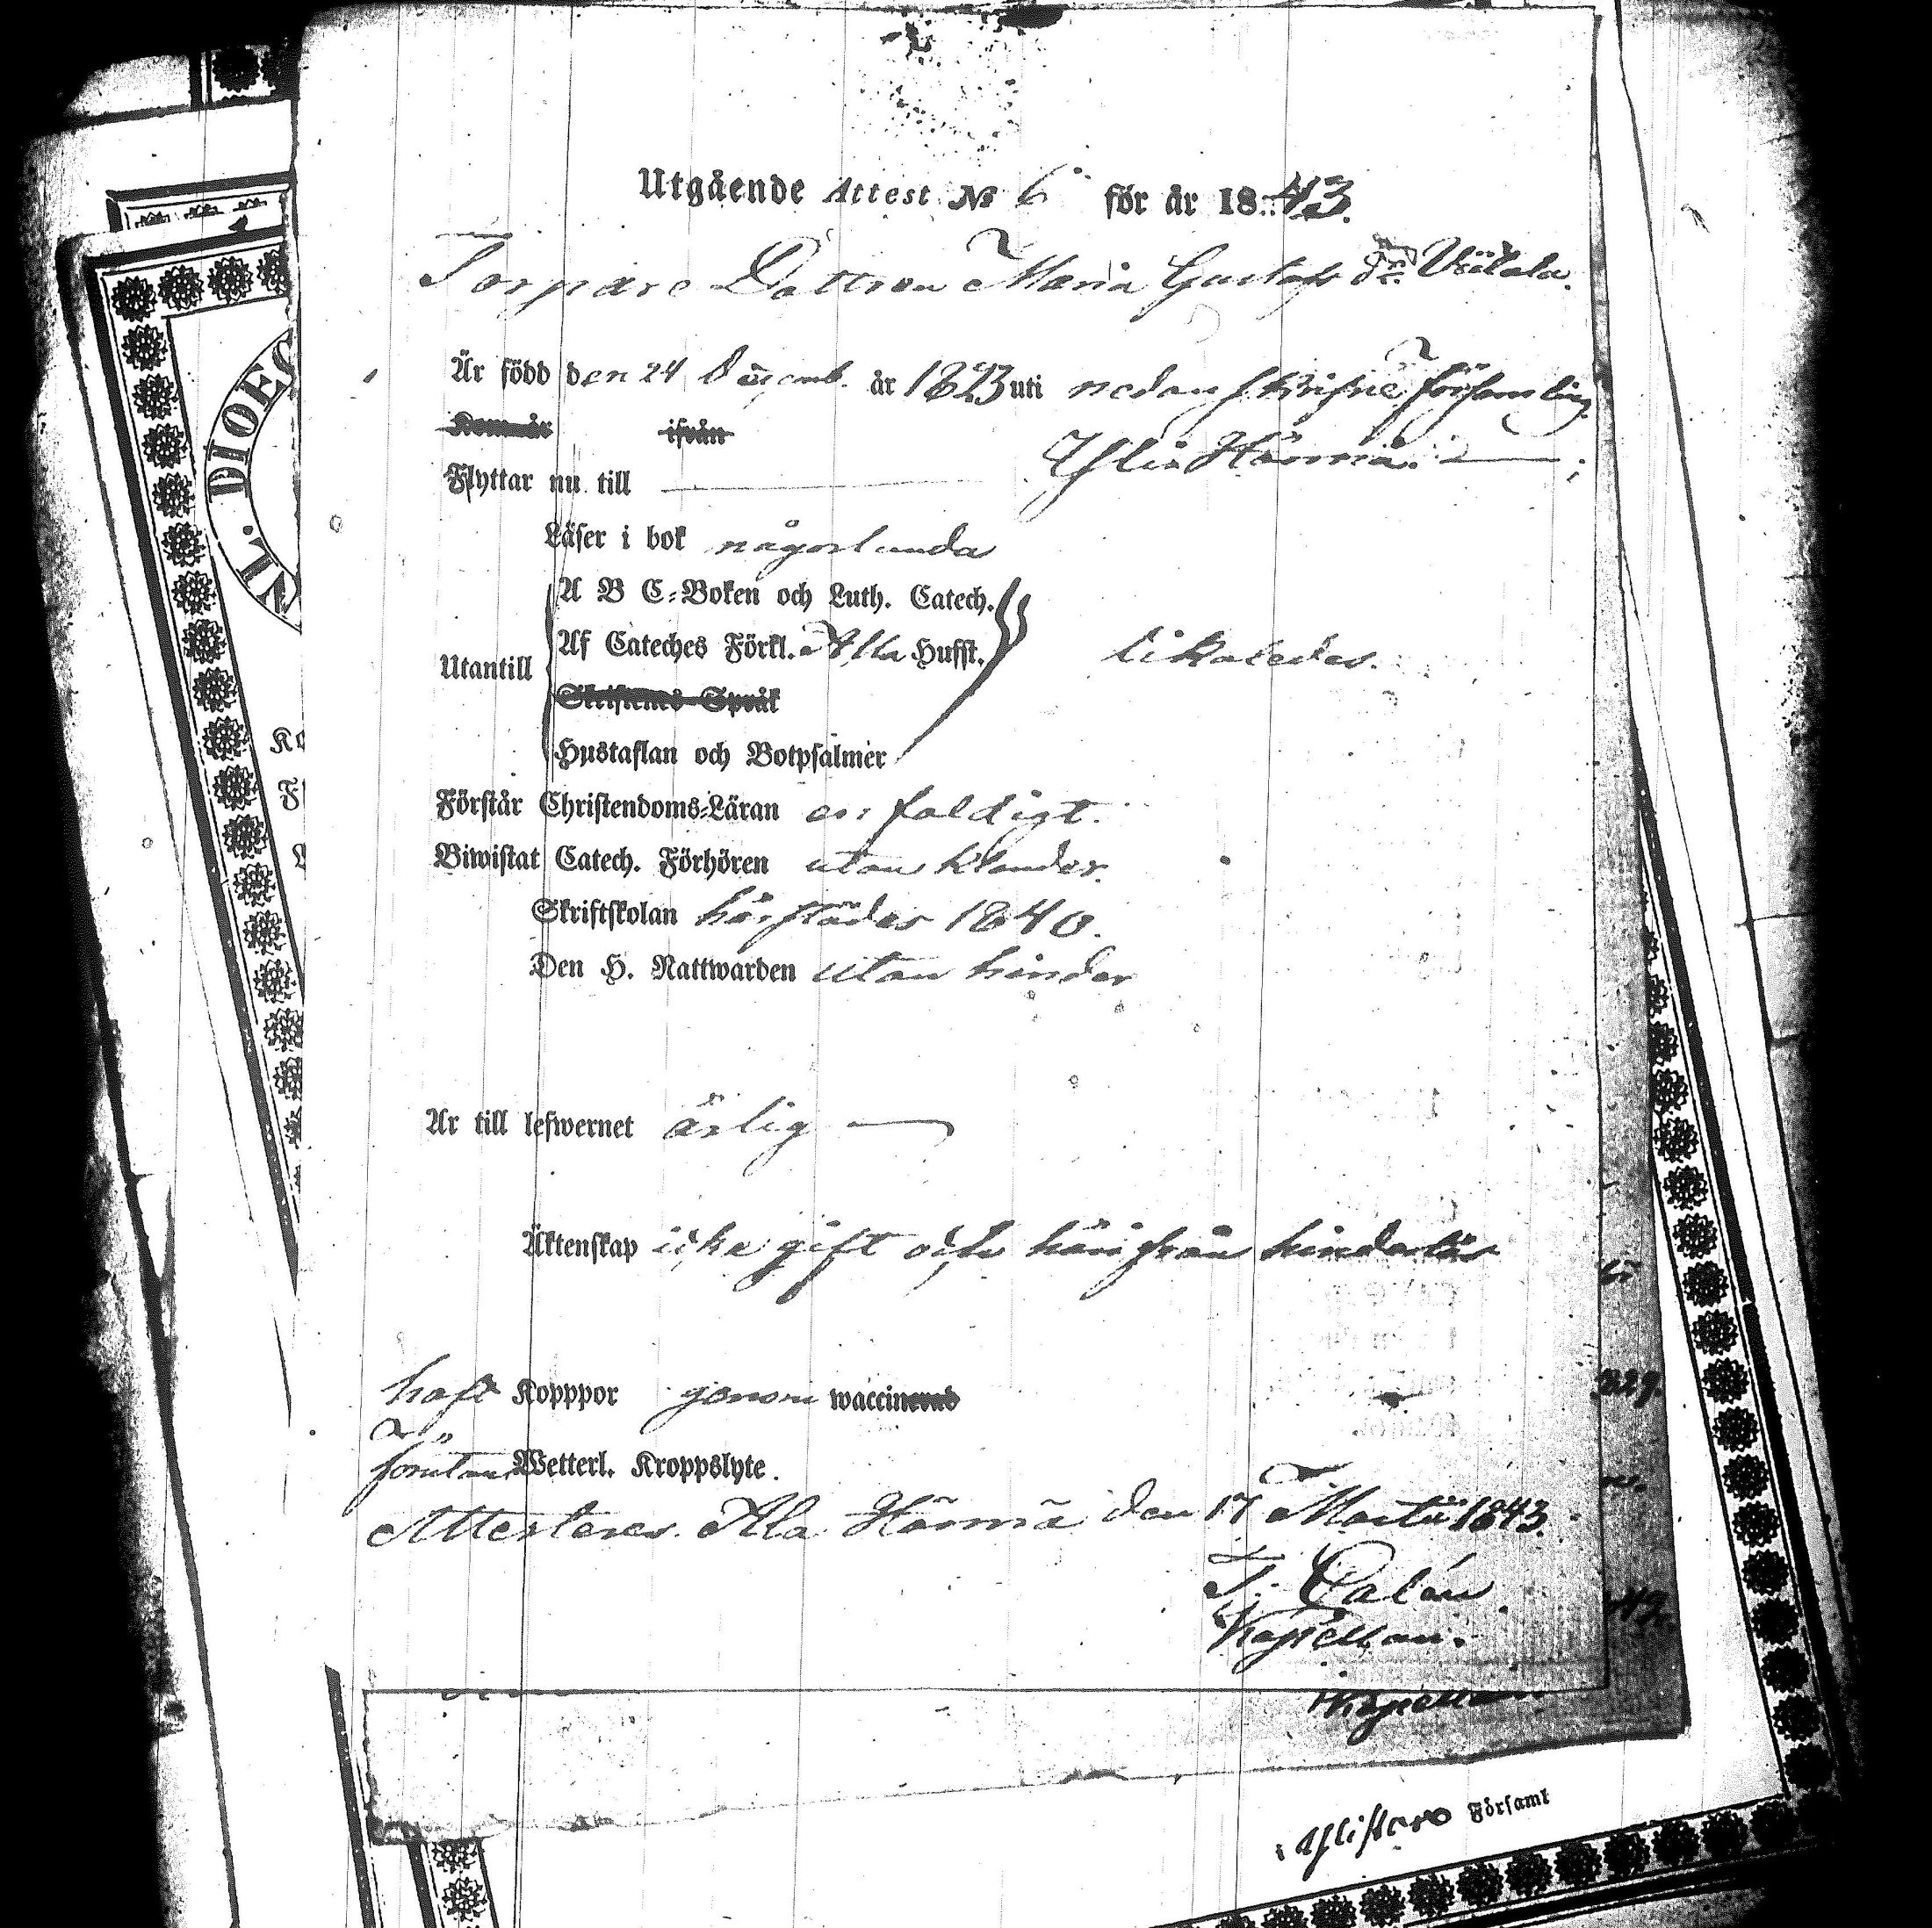 Utgående Attest № 6 för år 1843.
Torpare Dottren Maria Gustafs dr
Är född den 24 Decemb. år 1823 uti nedanskrifne församling
Kom år ifrån
Flyttar nu till Ylihärmä.
Läser i bok någorlunda
A B C-Boken och Luth. Catech.
Utantill Af Cateches Förkl. Alla Hufst. likaledes.
Skriftenes Språk
Hustaflan och Botpsalmer
Förstår Christendoms-Läran enfaldigt.
Biwistat Catech. Förhören utan klander.
Skriftskolan härstädes 1840.
Den H. Nattwarden utan hinder
Är till lefwernet ärlig
Äktenskap icke gift och härifrån hinderlös
haft Kopppor genom waccinerad
förutan Wetterl. Kroppslyte.
Attesteres. Ala Härmä den 17 Martii 1843.
Kapellan.
Kapellan
i Ylistaro Församl
NL. DIOEC